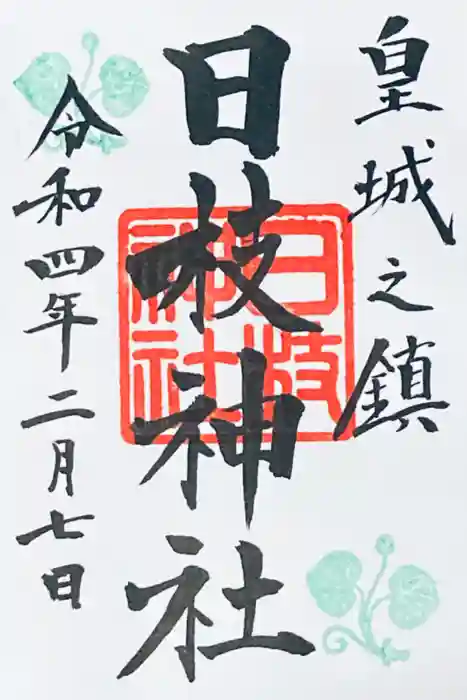 皇城之鎮
日枝神社
日枝神社
令和四年二月七日